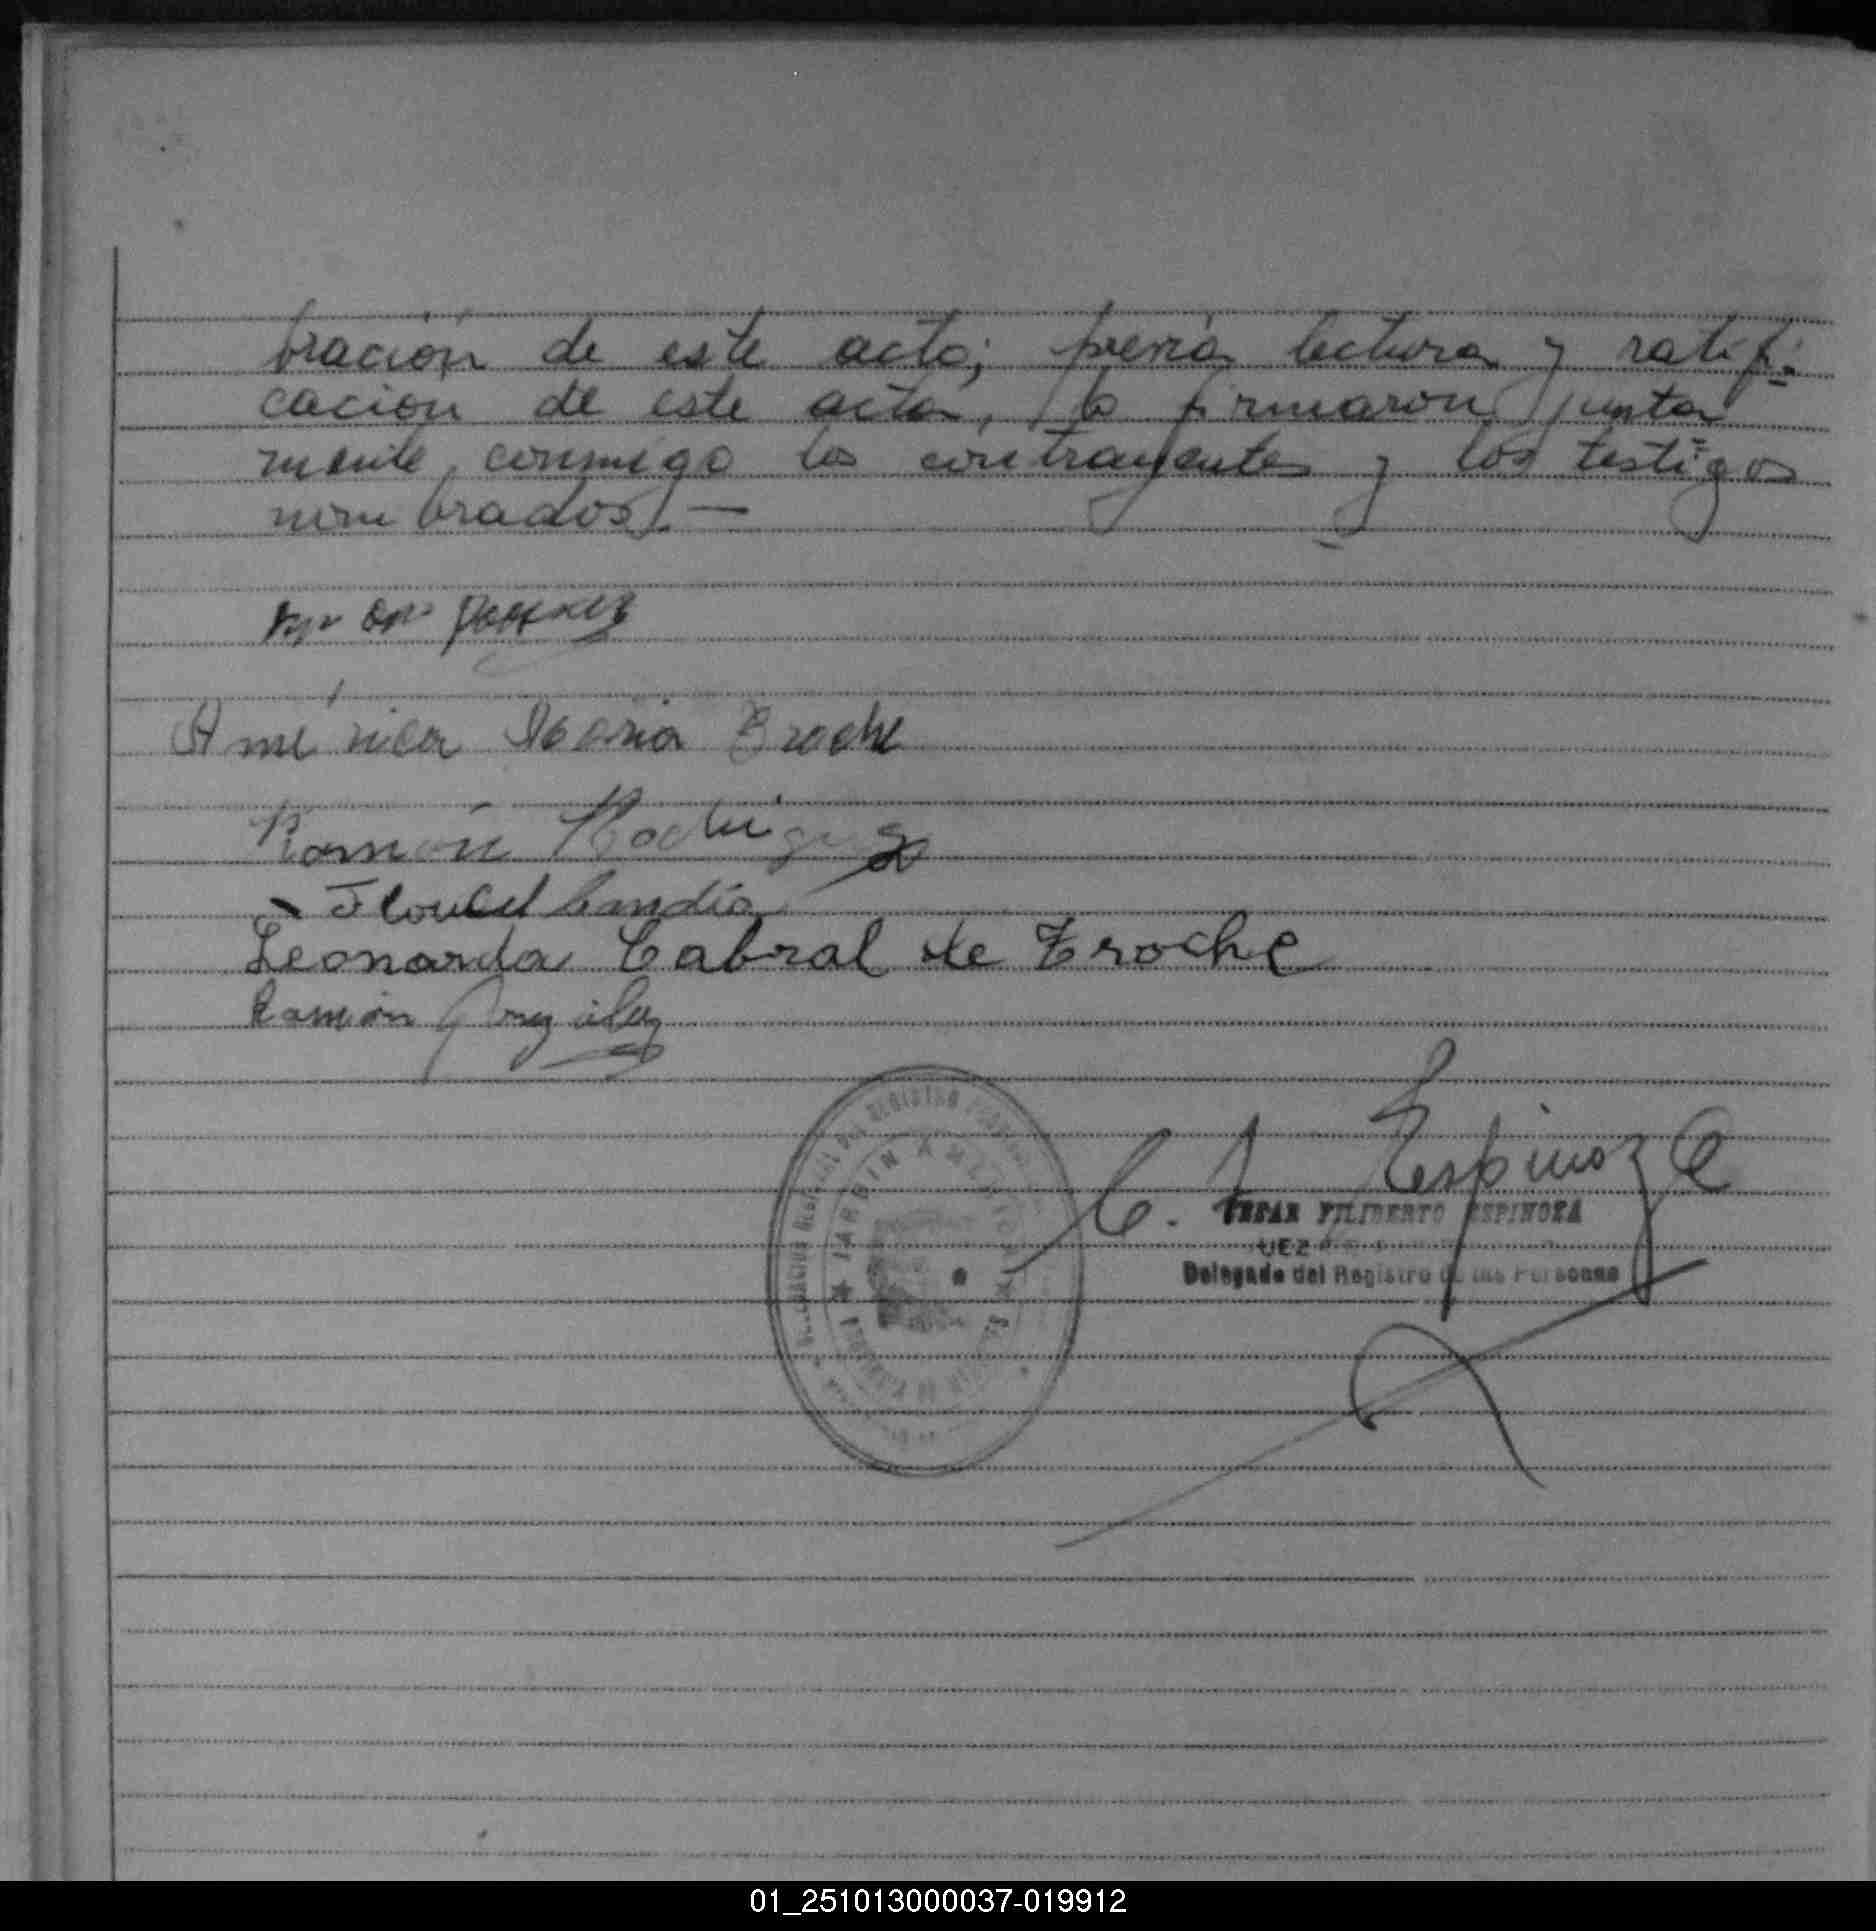 bración de este acto; previa lectura y ratifi-
cación de este acta, la firmaron junta
mente conmigo los contrayentes y los testigos
nombrados.—
América Maria Troche
Ramón Rodriguez
Candia
Leonarda Cabral de Troche
Ramón González
C. F. Espinoza
CESAR FILIBERTO ESPINOZA
JUEZ
Delegado del Registro de las Personas
JARDIN AMERICA
01_251013000037-019912